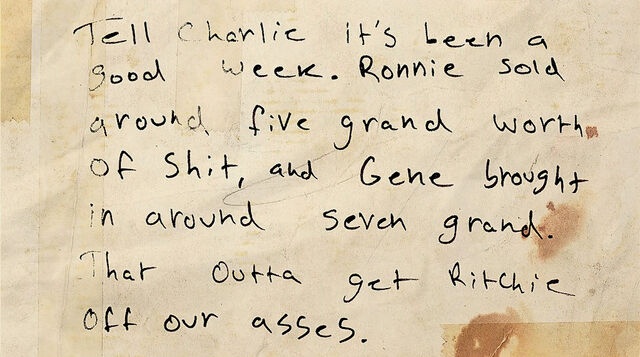 Tell Charlie it's been a
good week. Ronnie sold
around five grand worth
of shit, and Gene brought
in around seven grand.
That outta get Ritchie
off our asses.